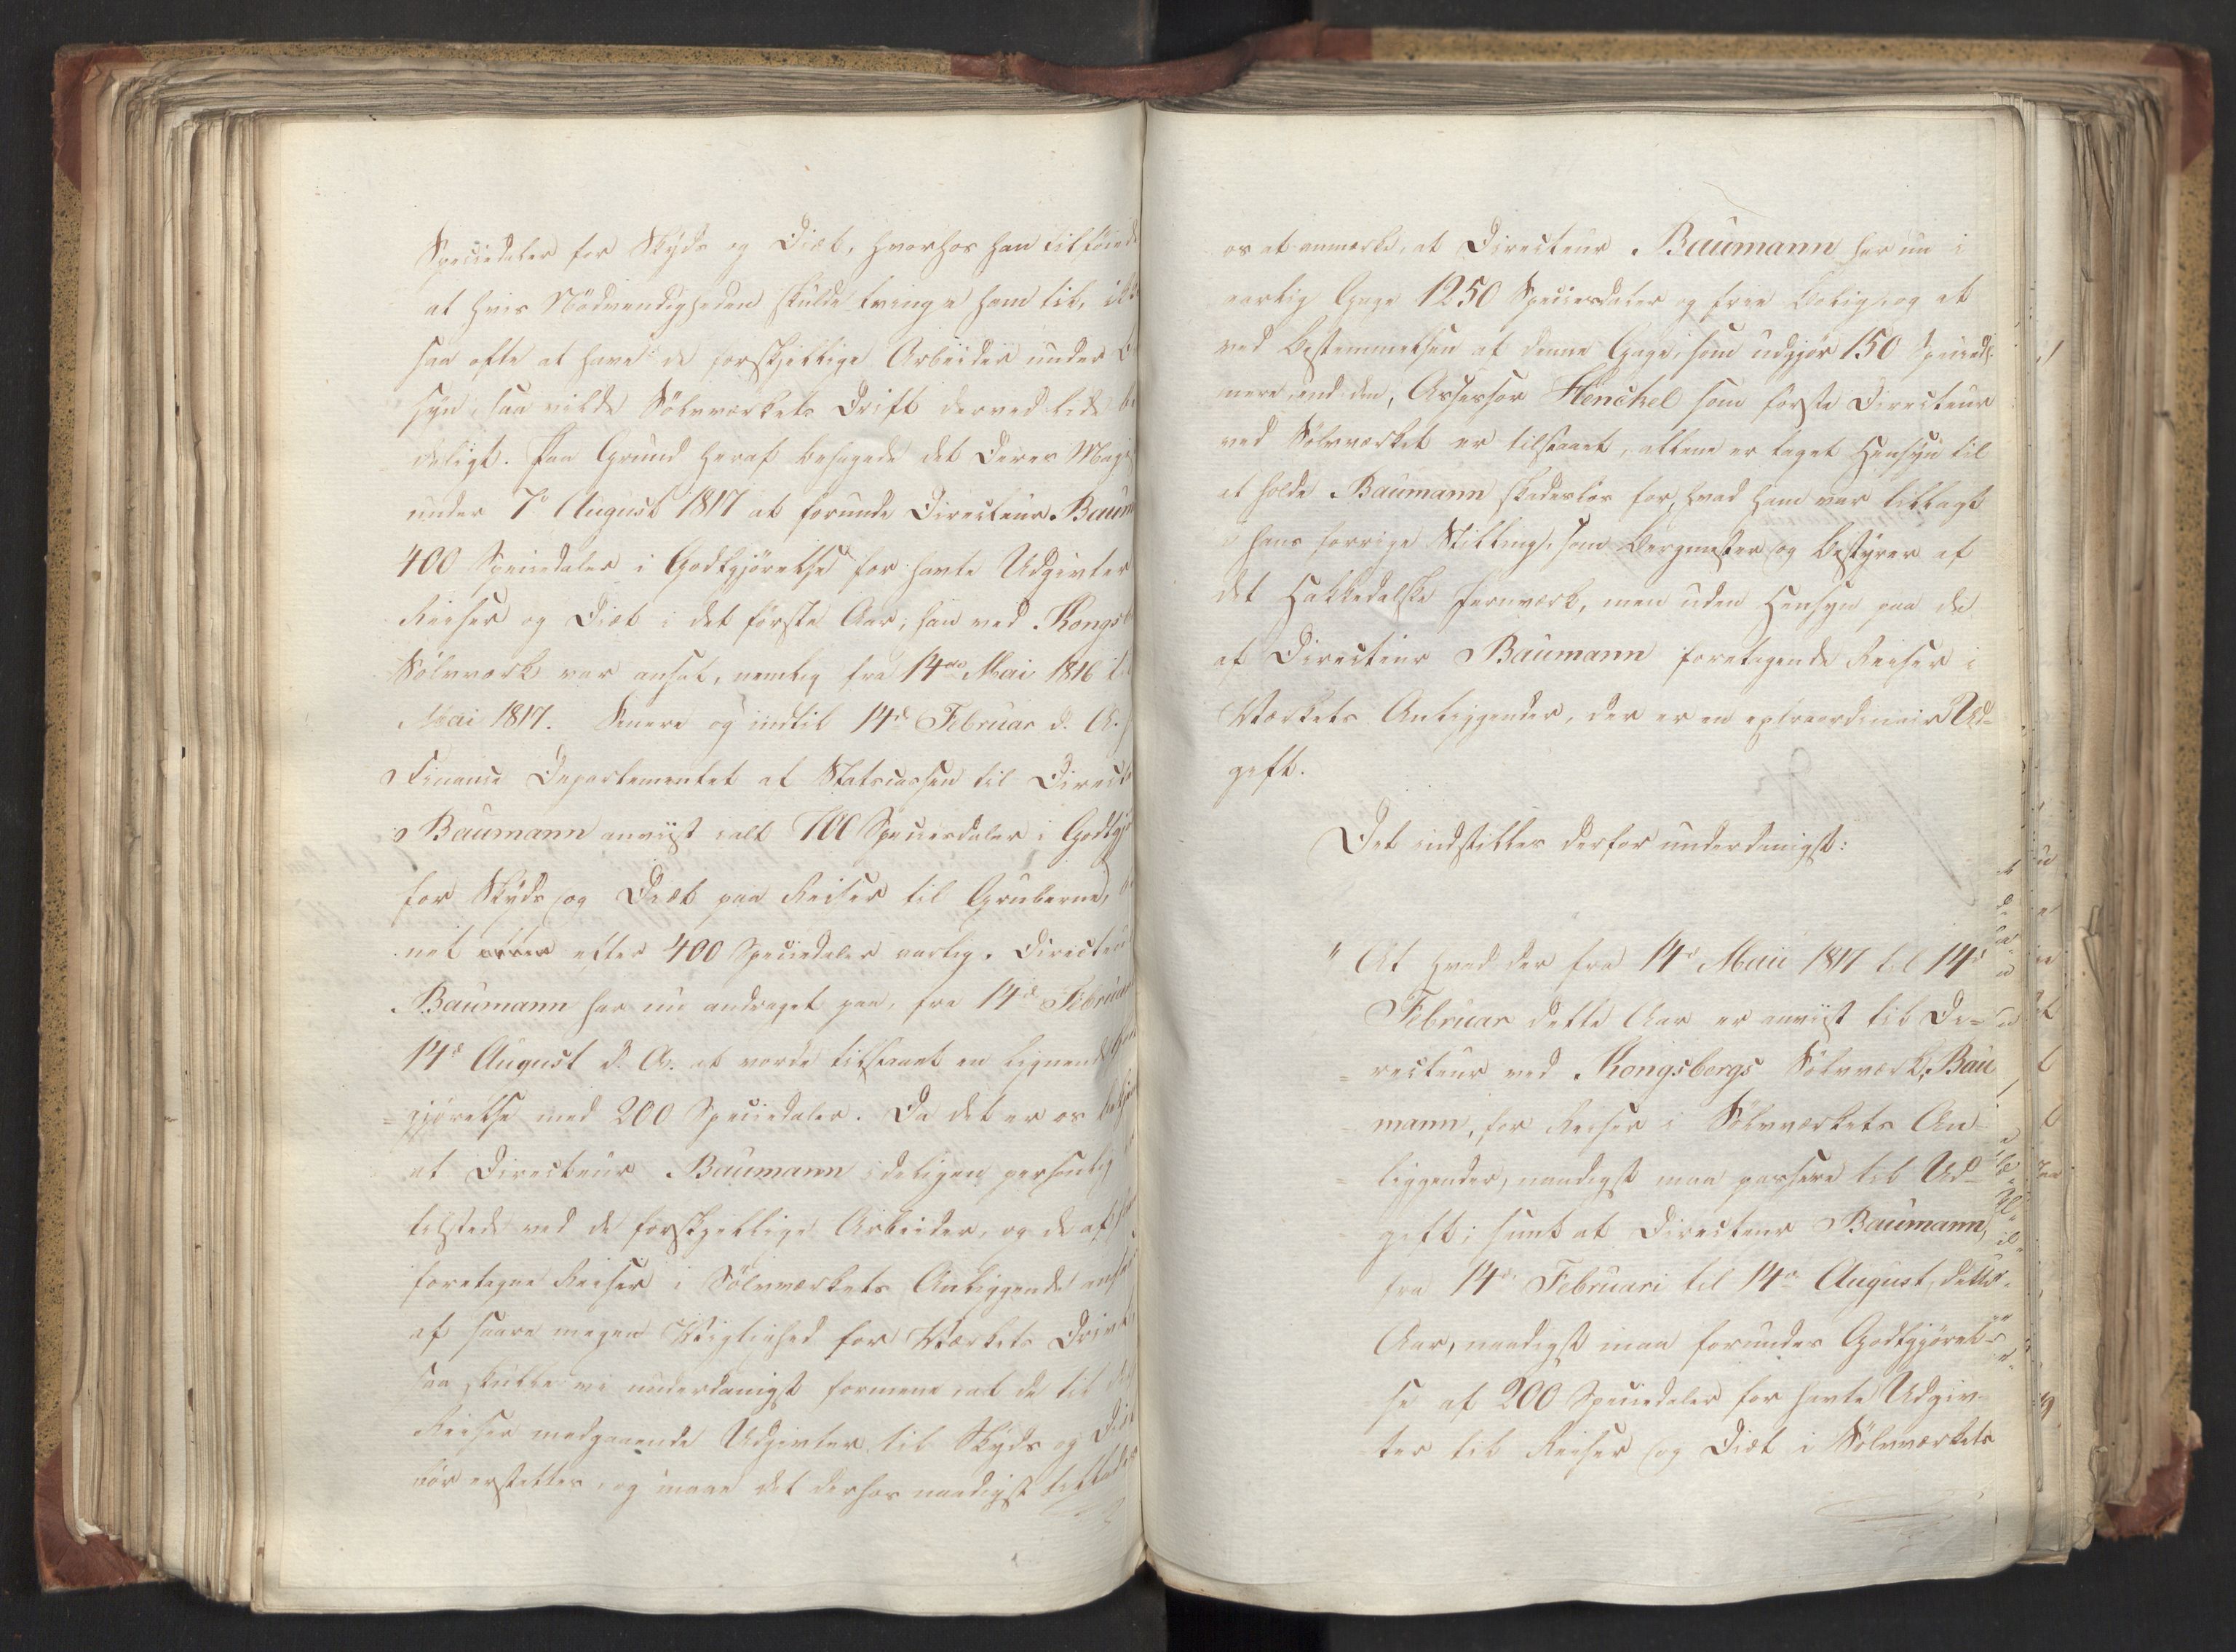 Speciedaler for Skyds og Diæt, hvorhos han tilföiede
at hvis Nödvendigheden skulde tvinge ham til, ikke
saa ofte at have de forskjellige Arbeider under
syn, saa vilde Sölvværkets Drift derved lide
deligt. Paa Grund heraf behagede det Deres Maje
under 7de August 1817 at forunde Directeur Baum
400 Speciedaler i Godtgjörelse for havte Udgivter
Reiser og Diæt i det förste Aar, han ved Kongsb
Sölvværk var ansat, nemlig fra 14de Mai 1816 til
Mai 1817. Senere og indtil 14de Februar d. A.
Finance Departementet af Statscassen til Direct
Baumann anviist ialt 700 Speciesdaler i Godtgj
for Skyds og Diæt paa Reiser til Gruberne,
net efter 400 Speciedaler aarlig. Directeur
Baumann har nu andraget paa, fra 14de Februar
14de August d. A. at vorde tilstaaet en lignende
gjörelse med 200 Speciedaler. Da det er os bekjen
at Directeur Baumann ideligen personlig
tilstede ved de forskjellige Arbeider, og de af
foretagne Reiser i Sölvværkets Anliggende ansees
af saare megen Vigtighed for Værkets Drivt,
saa skulle vi underdanigst formene, at de til
Reiser medgaaende Udgivter til Skyds og Diæt
bör erstattes, og maae det derhos naadigst tillades
os at anmærke, at Directeur Baumann har nu i
aarlig Gage 1250 Speciesdaler og frie Bolig, og at
ved Bestemmelsen af denne Gage, som udgjör 150 Speciedr
mere end den, Assessor Henckel som förste Directeur
ved Sölvværket er tilstaaet, allene er taget Hensyn til
at holde Baumann skadeslös for, hvad ham var tillagt
i hans forrige Stilling, som Bergmester og Bestyrer af
det Hakkedalske Jernværk, men uden Hensyn paa de
af Directeur Baumann foretagende Reiser i
Værkets Anliggender, der er en extraordinair Ud-
gift.
Det indstilles derfor underdanigst:
" At hvad der fra 14de Maii 1817 til 14de
Februar dette Aar er anviist til Di-
recteur ved Kongsbergs Sölvværk, Bau
mann, for Reiser i Sölvværkets An-
liggender, naadigst maa passere til Ud-
gift; samt at Directeur Baumann,
fra 14de Februari til 14de August, dette
Aar, naadigst maa forundes Godtgjörel-
se af 200 Speciedaler for havte Udgiv-
ter til Reiser og Diæt i Sölvværkets